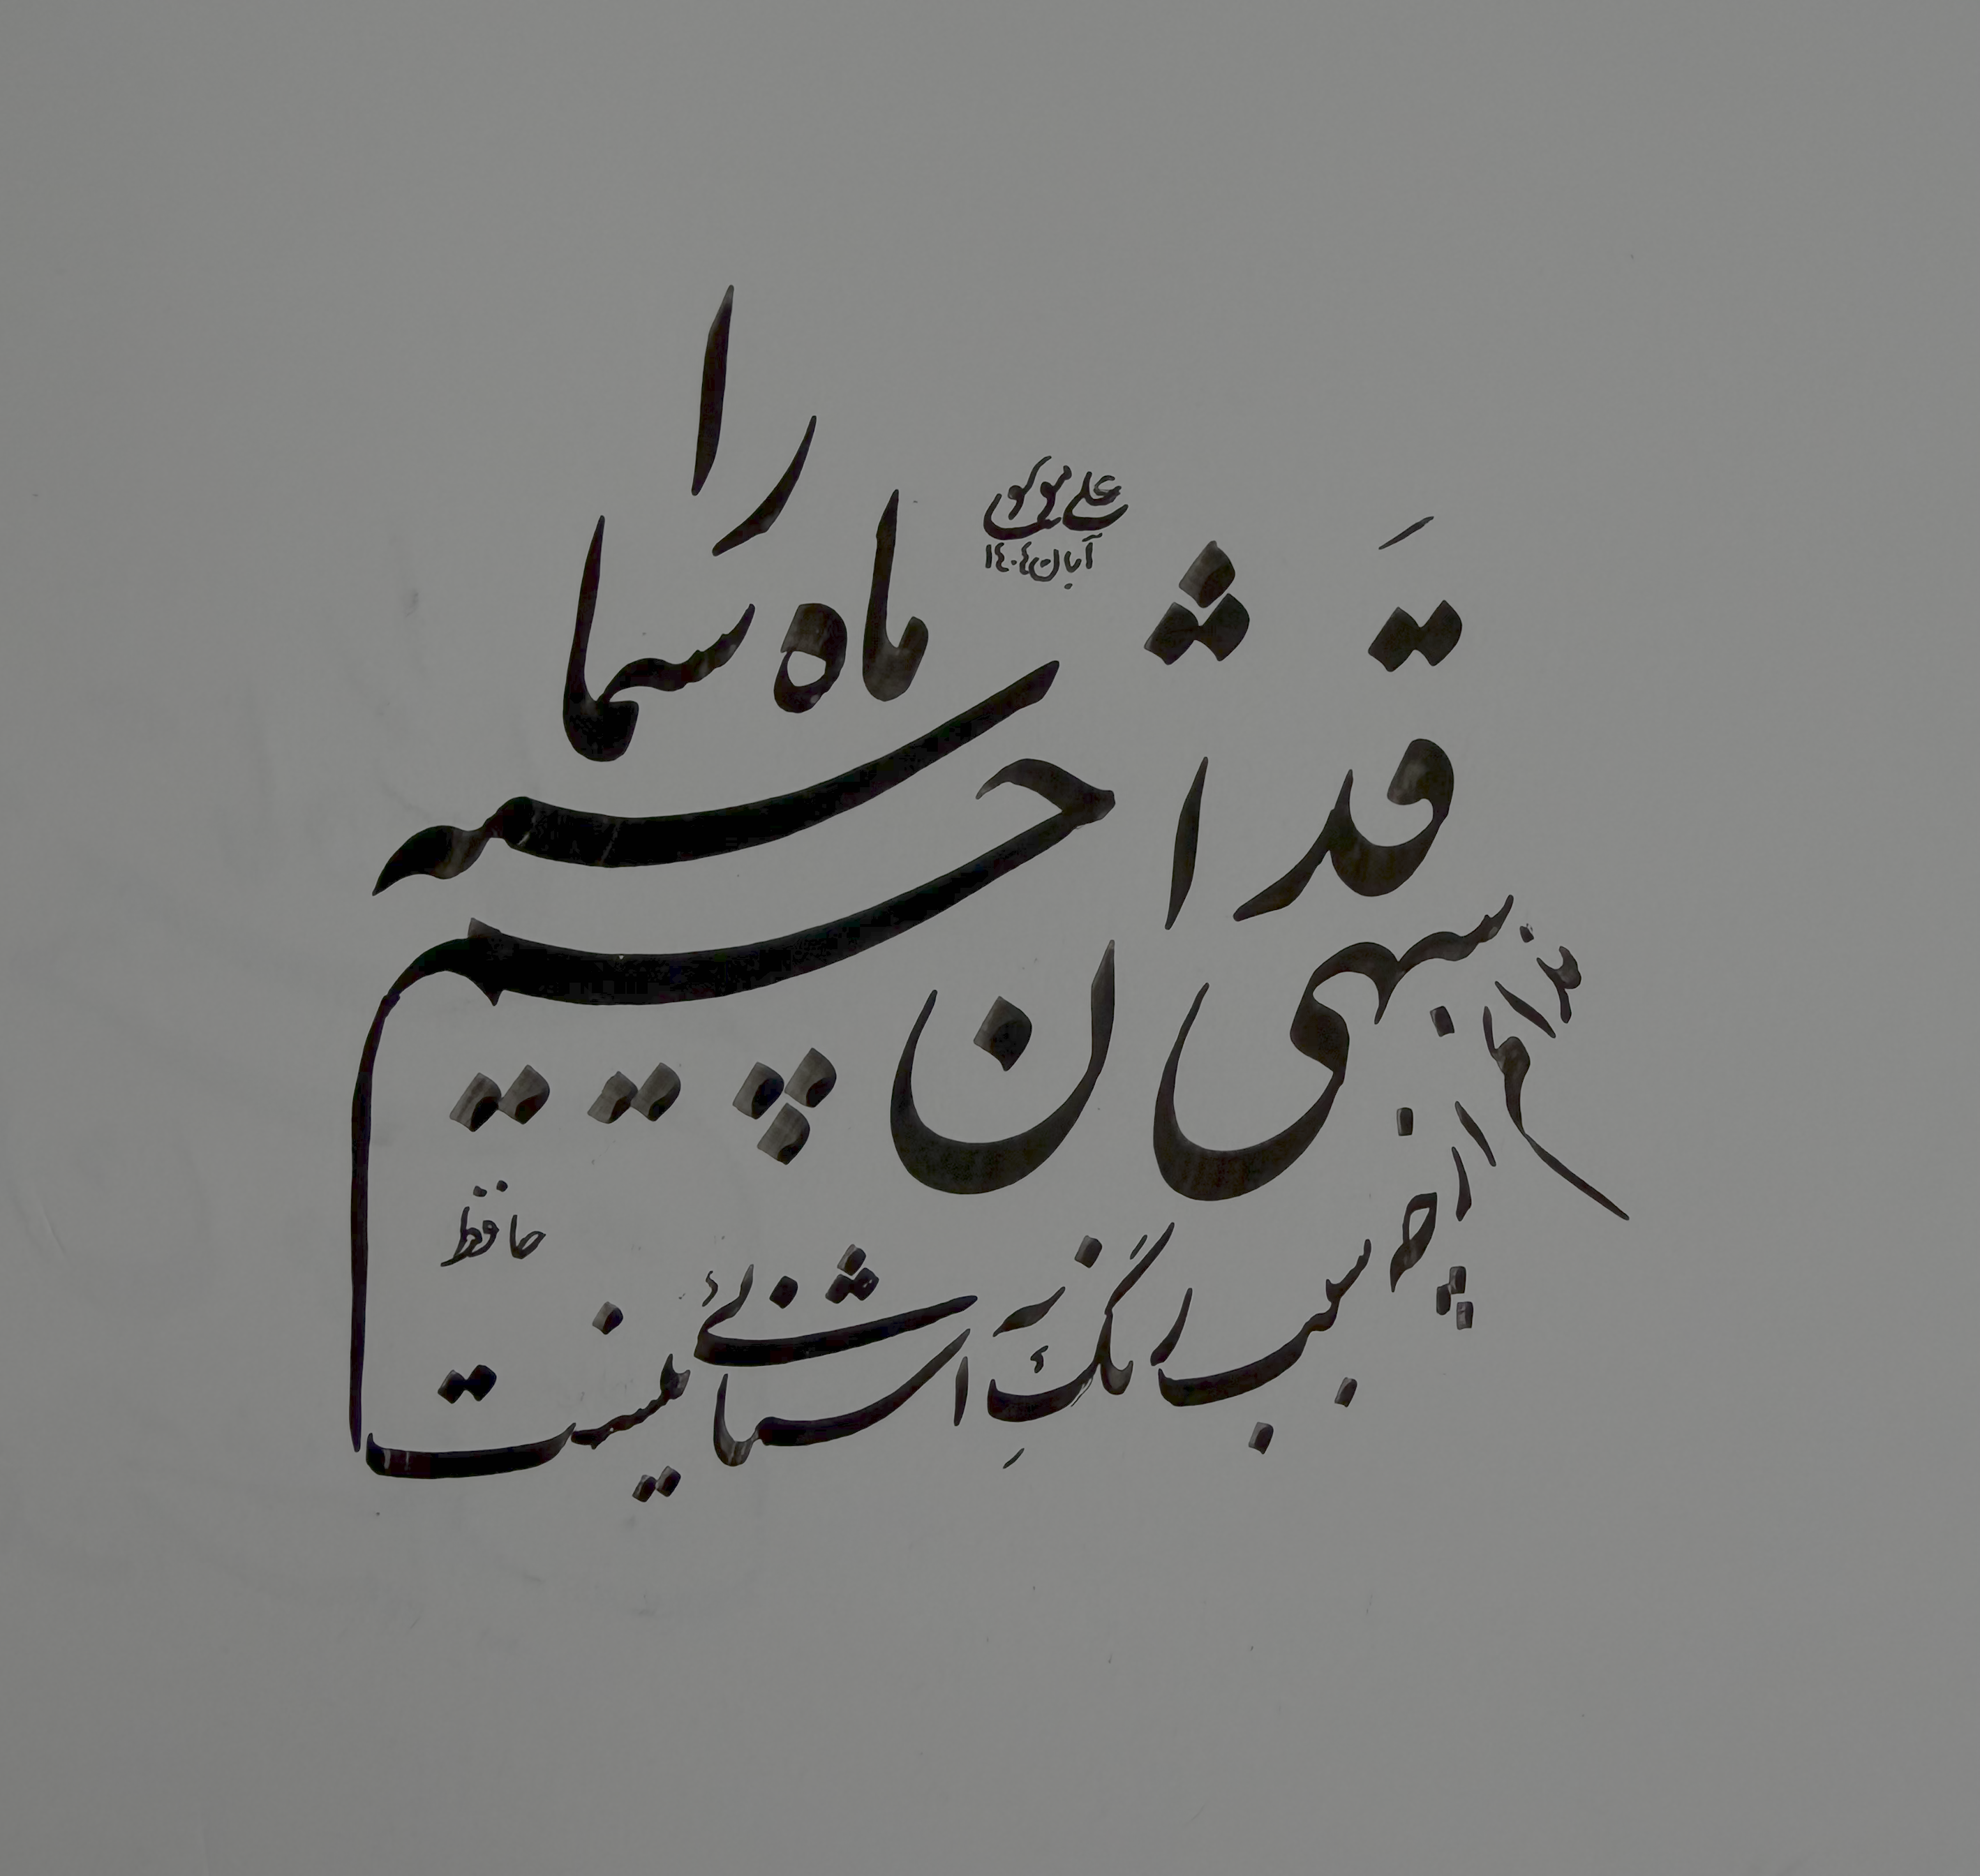 ندانم از چه سبب رنگِ آشنائی نیست
سهی قدان سیه چشم ماه سیما را
حافظ
علی
آبان ۱۴۰۴